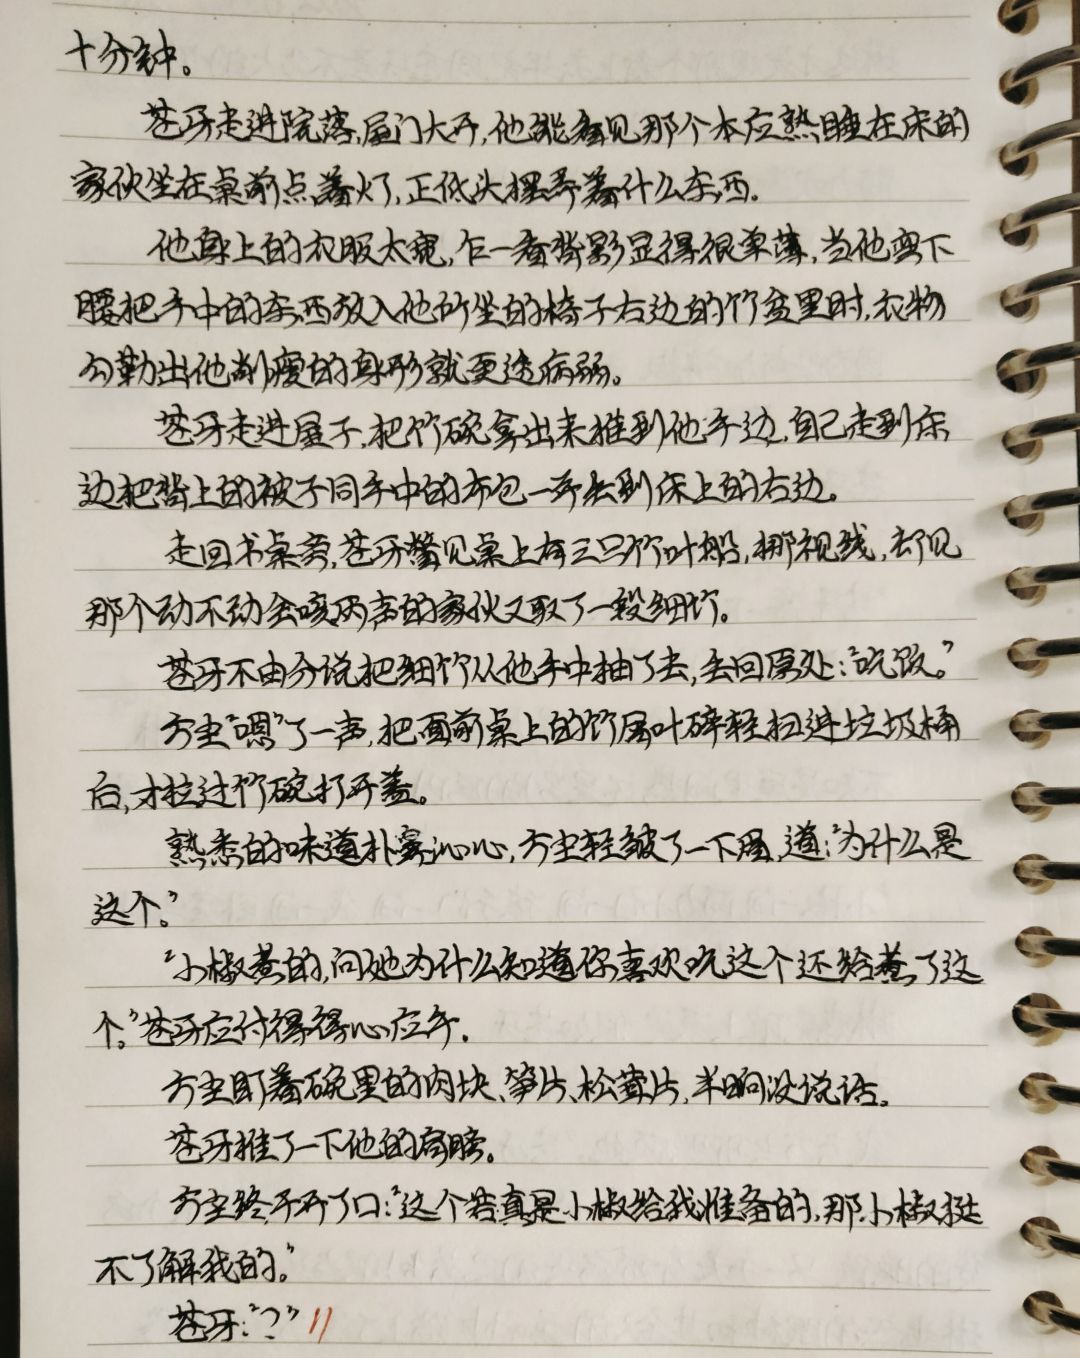 十分钟。
苍牙走进院落，屋门大开，他能看见那个本应熟睡在床的
家伙坐在桌前点着灯，正低头摆弄着什么东西。
他身上的衣服太宽，乍一看背影显得很单薄，当他弯下
腰把手中的东西放入他所坐的椅子右边的竹盆里时，衣物
勾勒出他削瘦的身形就更透病弱。
苍牙走进屋子，把竹碗拿出来推到他手边，自己走到床
边把背上的被子同手中的布包一齐丢到床上的右边。
走回书桌旁，苍牙瞥见桌上有三只竹叶船，挪视线，却见
那个动不动会咳两声的家伙又取了一段细竹。
苍牙不由分说把细竹从他手中抽了去，丢回原处：“吃饭。”
方尘“嗯”了一声，把面前桌上的竹屑叶碎轻扫进垃圾桶
后，才拉过竹碗打开盖。
熟悉的味道扑鼻沁心，方尘轻皱了一下眉，道：“为什么是
这个。”
“小椒煮的，问她为什么知道你喜欢吃这个还给煮了这
个。”苍牙应付得得心应手。
方尘盯着碗里的肉块、笋片、松茸片，半晌没说话。
苍牙推了一下他的肩膀。
方尘终于开了口：“这个若真是小椒给我准备的，那小椒挺
不了解我的。”
苍牙：“？”